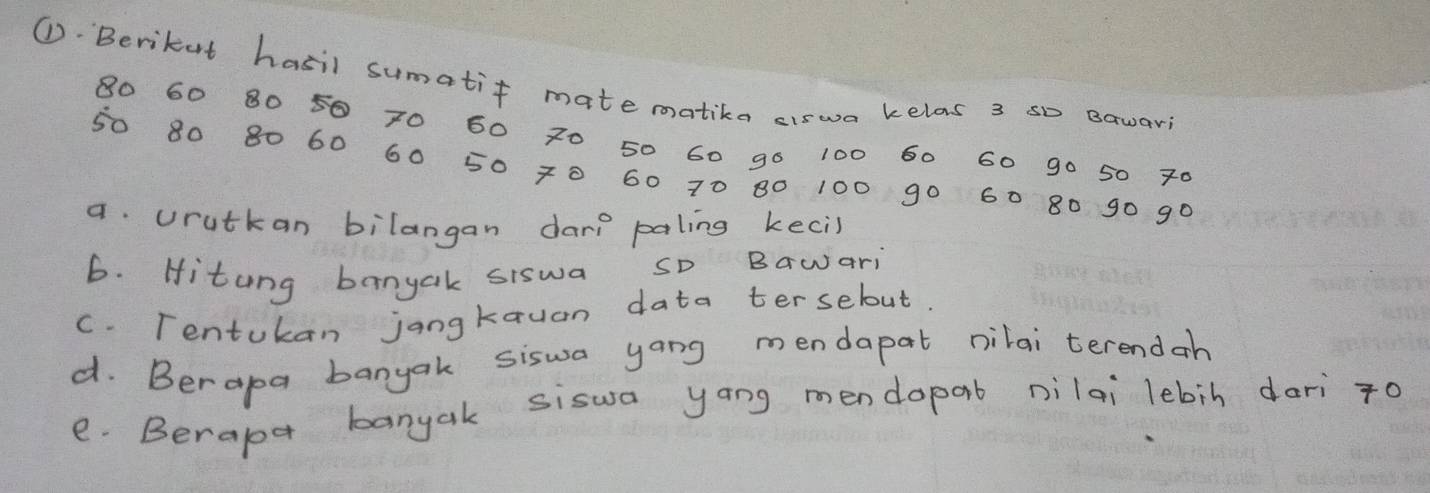 ①. Berikut hasil sumatif matematika siswa kelas 3 SD Bawari
80 60 80 50 70 60 70 50 60 90 100 60 60 90 50 70
50 80 80 60 60 50 70 60 70 80 100 90 60 80 90 90
a. Urutkan bilangan dari paling kecil
b. Hitung banyak siswa SD Bawari
c. Tentukan jangkauan data tersebut.
d. Berapa banyak siswa yang mendapat nilai terendah
e. Berapa banyak siswa yang mendapat nilai lebih dari 70